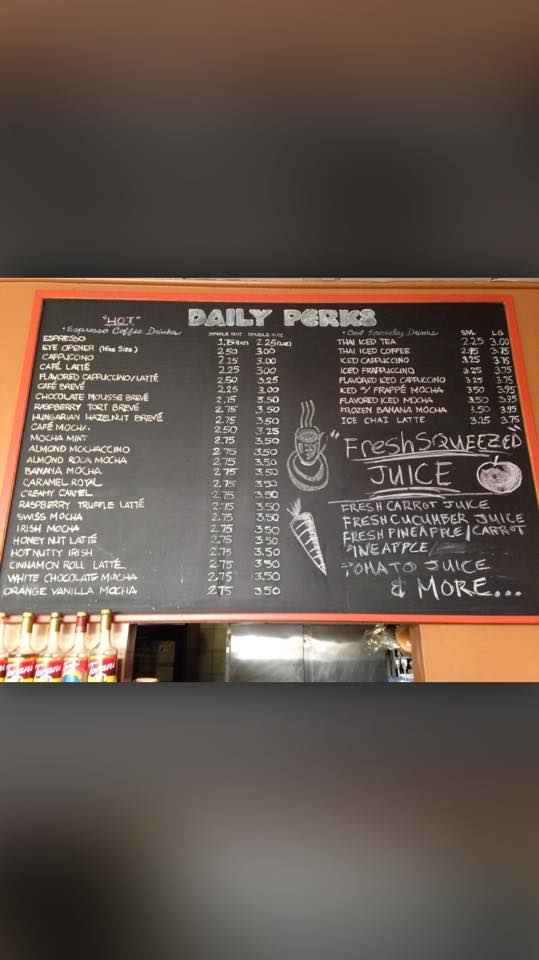 DAILY PERKS
"HOT"
• Espresso Coffee Drinks
SINGLE 12 OZ DOUBLE 16 OZ
ESPRESSO 2.25
EYE OPENER (16oz Size) 2.50 3.00
CAPPUCCINO 2.25 3.00
CAFÉ LATTÉ 2.25 3.00
FLAVORED CAPPUCCINO/LATTÉ 2.50 3.25
CAFÉ BREVÉ 2.25 3.00
CHOCOLATE MOUSSE BREVÉ 2.75 3.50
RASPBERRY TORT BREVÉ 2.75 3.50
HUNGARIAN HAZELNUT BREVÉ 2.75 3.50
CAFÉ MOCHA 2.50 3.25
MOCHA MINT 2.75 3.50
ALMOND MOCHACCINO 2.75 3.50
ALMOND ROCA MOCHA 2.75 3.50
BANANA MOCHA 2.75 3.50
CARAMEL ROYAL 2.75 3.50
CREAMY CARMEL 2.75 3.50
RASPBERRY TRUFFLE LATTÉ 2.75 3.50
SWISS MOCHA 2.75 3.50
IRISH MOCHA 2.75 3.50
HONEY NUT LATTÉ 2.75 3.50
HOT NUTTY IRISH 2.75 3.50
CINNAMON ROLL LATTÉ 2.75 3.50
WHITE CHOCOLATE MOCHA 2.75 3.50
ORANGE VANILLA MOCHA 2.75 3.50
• Cool Specialty Drinks SM. LG.
THAI ICED TEA 2.25 3.00
THAI ICED COFFEE 2.95 3.75
ICED CAPPUCCINO 3.25 3.75
ICED FRAPPUCCINO 3.25 3.75
FLAVORED ICED CAPPUCCINO 3.25 3.75
ICED FRAPPÉ MOCHA 3.50 3.95
FLAVORED ICED MOCHA 3.50 3.95
FROZEN BANANA MOCHA 3.50 3.95
ICE CHAI LATTE 3.25 3.75
"FreshSQUEEZED"
JUICE
FRESH CARROT JUICE
FRESH CUCUMBER JUICE
FRESH PINEAPPLE/CARROT
PINEAPPLE/
TOMATO JUICE
& MORE...
Torani
Torani